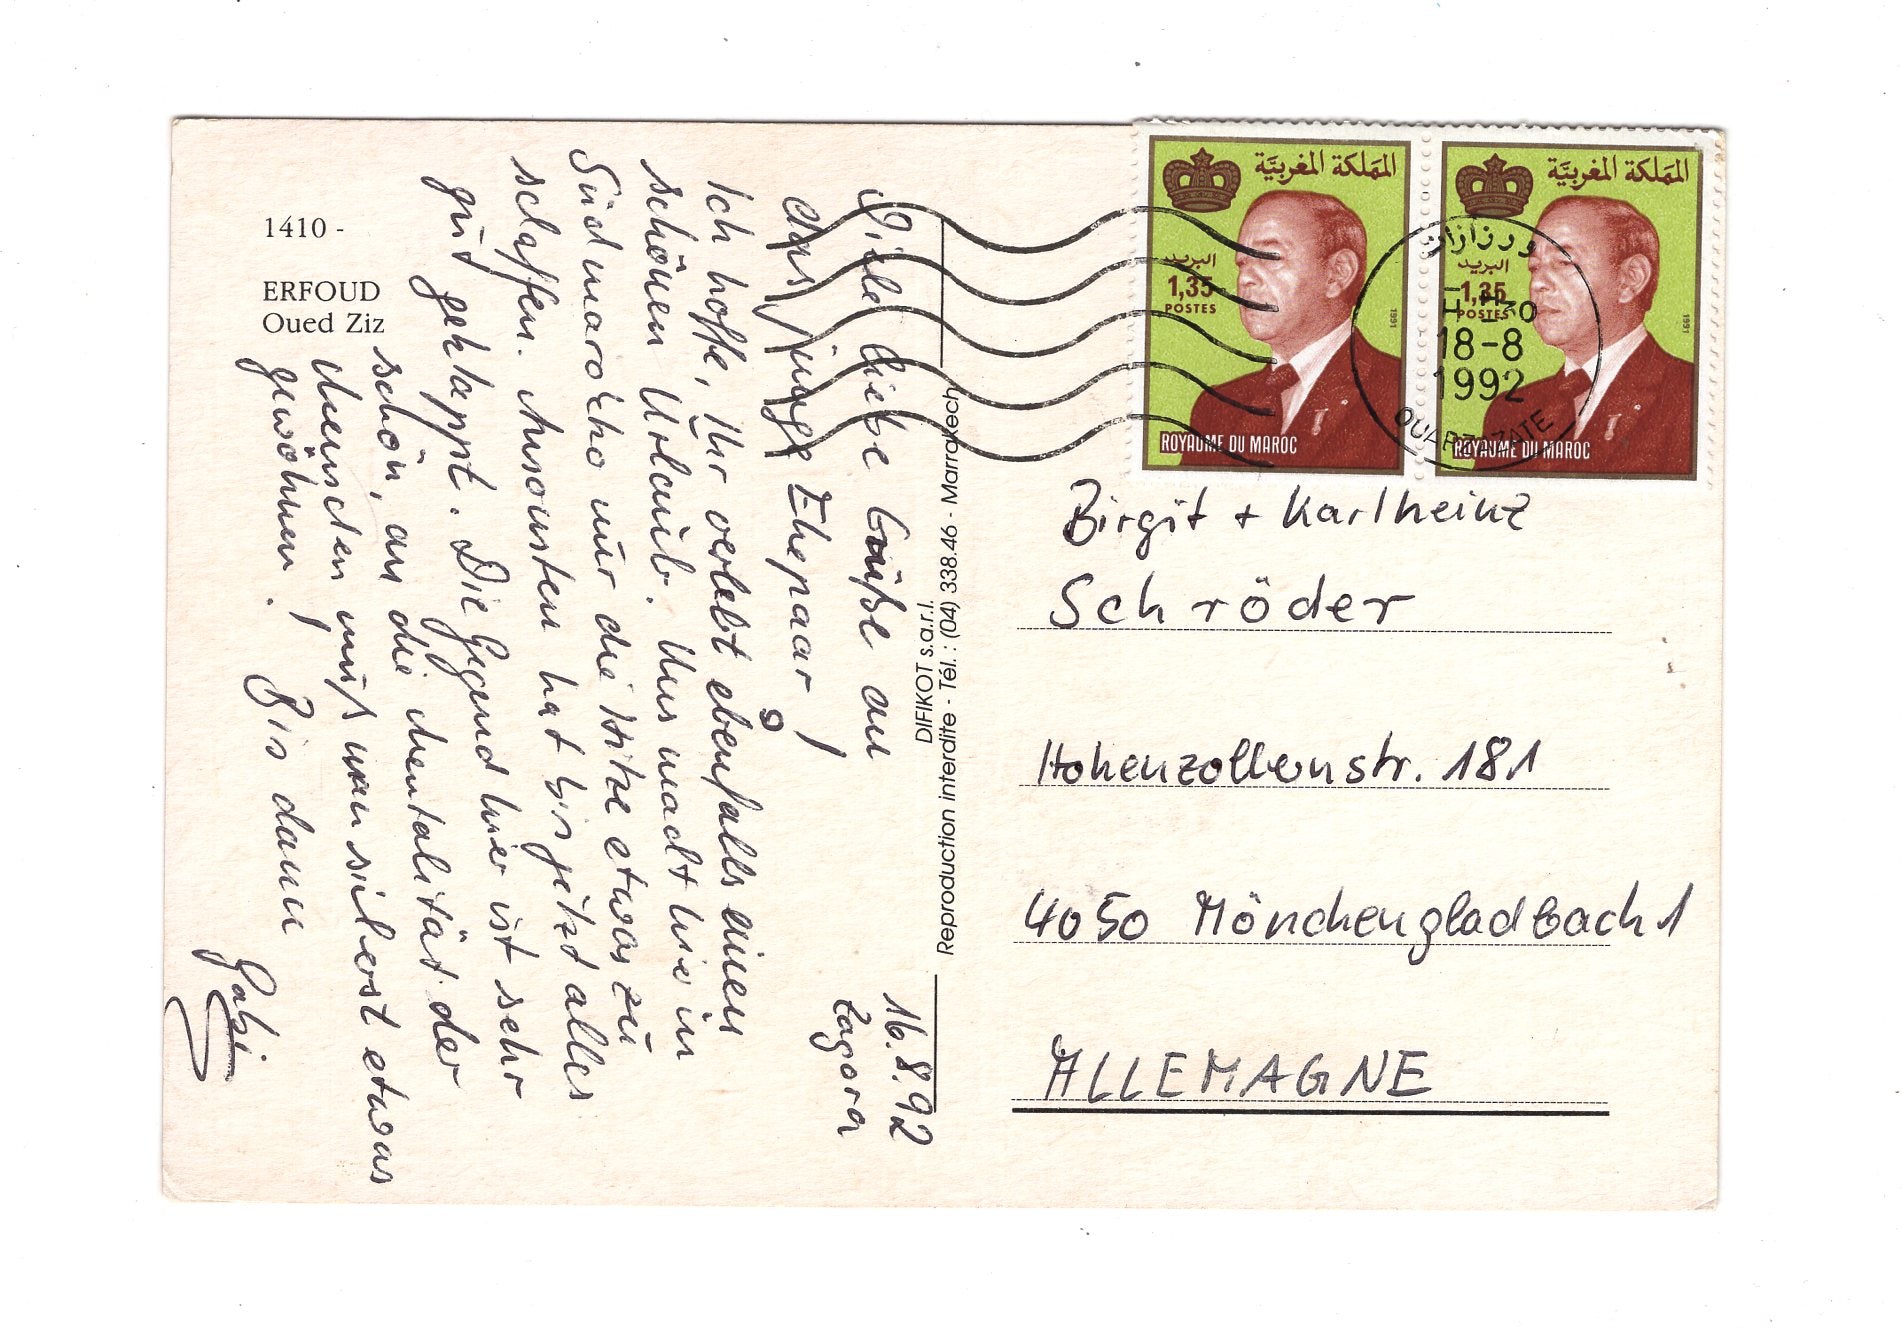 1410 -
ERFOUD
Oued Ziz
16.8.92
Zagora
Viele liebe Grüße an
das junge Ehepaar!
Ich hoffe, Ihr verlebt ebenfalls einen
schönen Urlaub. Uns macht hier in
Südmarokko nur die Hitze etwas zu
schaffen. Ansonsten hat bis jetzt alles
gut geklappt. Die Gegend hier ist sehr
schön, an die Mentalität der
Menschen muß man sich erst etwas
gewöhnen! Bis dann
Gabi
DIFIKOT s.a.r.l.
Reproduction interdite - Tél. : (04) 338.46 - Marrakech
المملكة المغربية
البريد
1,35
POSTES
1991
ROYAUME DU MAROC
المملكة المغربية
البريد
1,35
POSTES
1991
ROYAUME DU MAROC
ورزازات
18-8
1992
OUARZAZATE
Birgit + Karlheinz
Schröder
Hohenzollernstr. 181
4050 Mönchengladbach 1
ALLEMAGNE